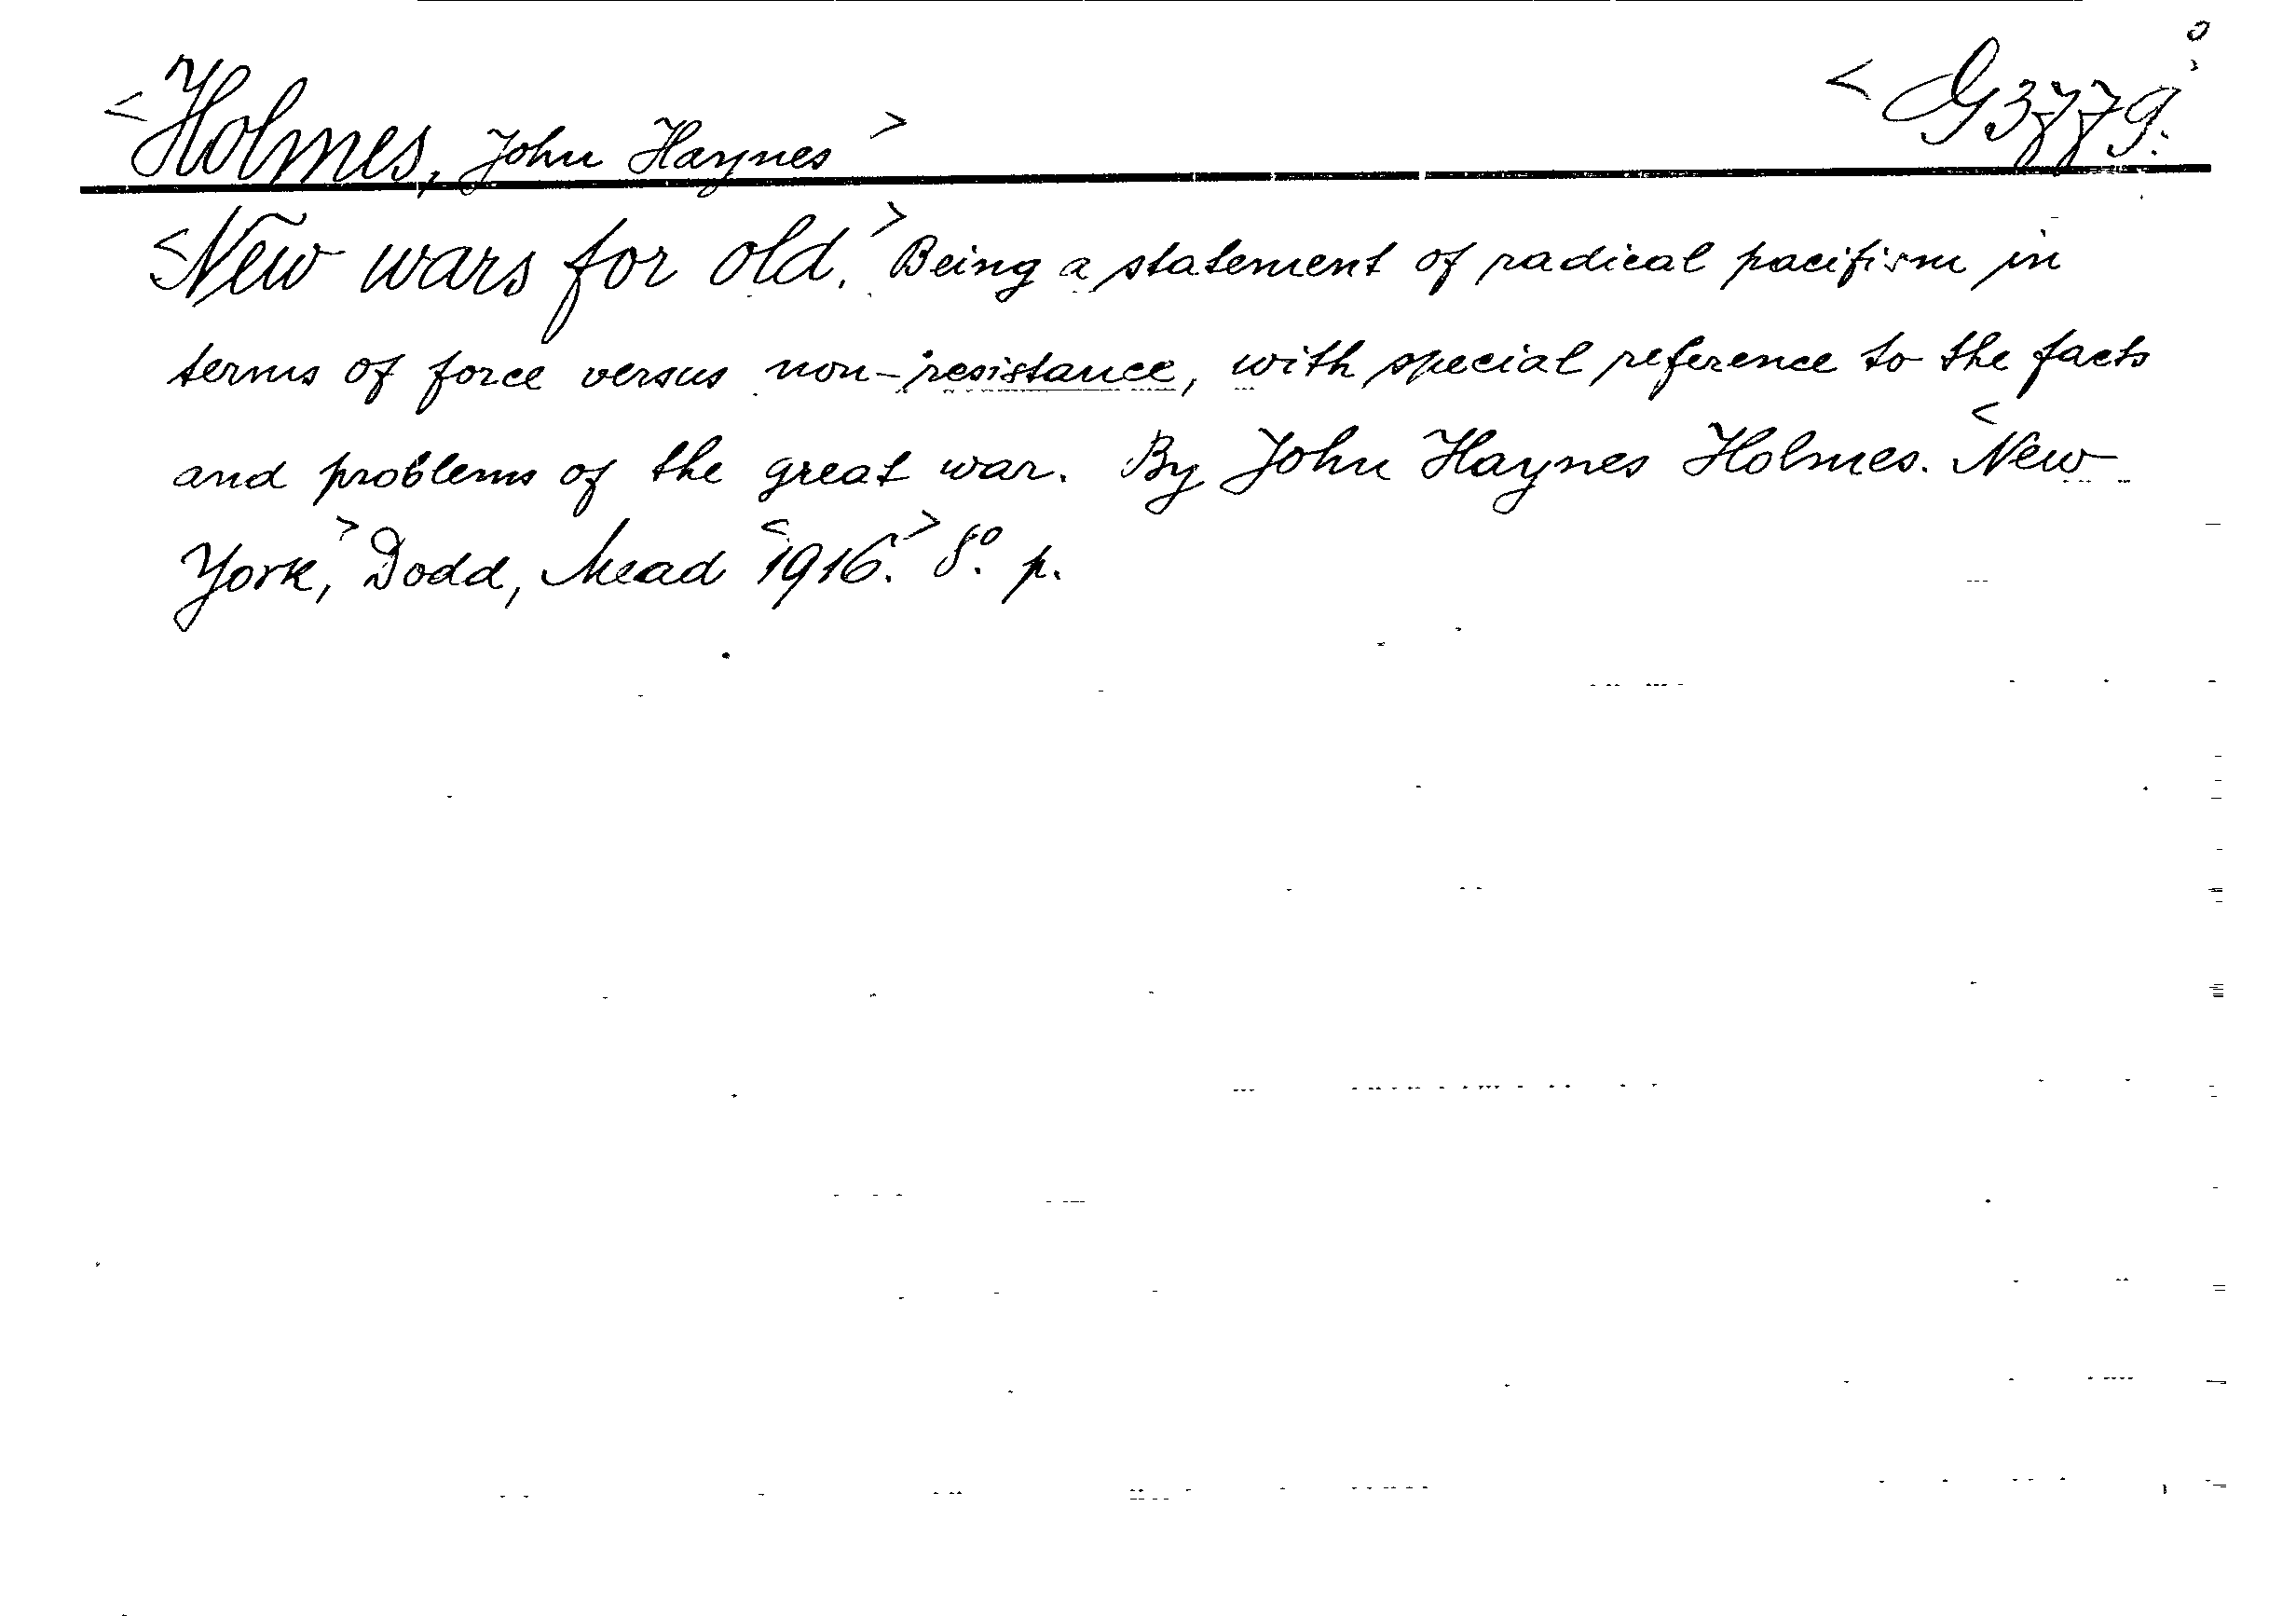 <Holmes, John Haynes> <G3779.
<New wars for old.> Being a statement of radical pacifism in
terms of force versus non-resistance, with special reference to the facts
and problems of the great war. By John Haynes Holmes. <New
York,> Dodd, Mead <1916.> 8º. p.